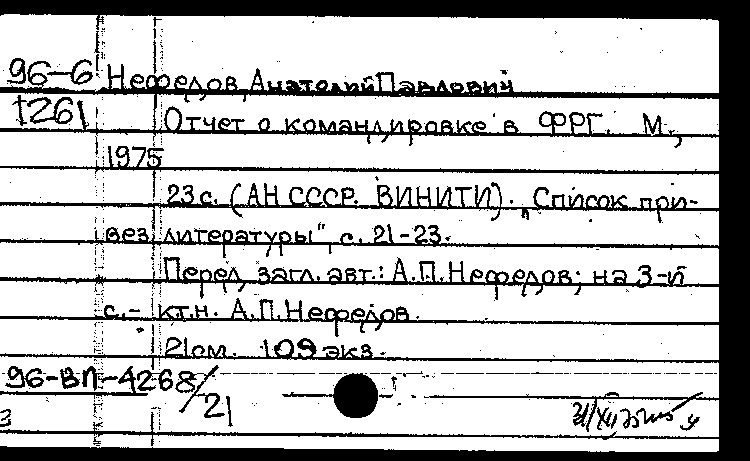 96-6 Нефедов, Анатолий Павлович
1261 Отчет о командировке в ФРГ. М.,
1975
23 с. (АН СССР. ВИНИТИ). „Список при-
вез. литературы", с. 21-23.
Перед загл. авт.: А.П. Нефедов; на 3-й
с.- к.т.н. А.П. Нефедов.
21 см. 109 экз.
96-ВП-4268/21
3